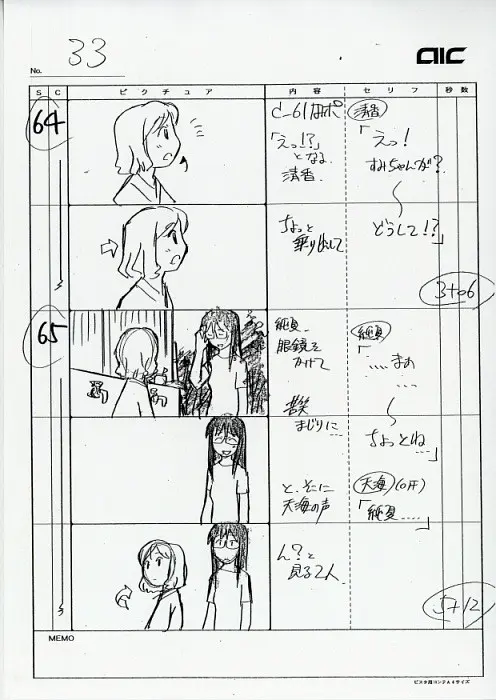 No. 33
aic
S C ピクチュア 内容 セリフ 秒数
64
C-61
「えっ!?」
となる
清香.
清香
「えっ!
すみちゃんが?
ちょっと
乗り出して
どうして!?」
3+06
65
眼鏡を
かけて
苦笑
まじりに…
「….まぁ
…
ちょっとね
…」
と、そこに
天海の声
天海(OFF)
ん?と
見る2人.
5+12
MEMO
ビスタ用コンテA4サイズ